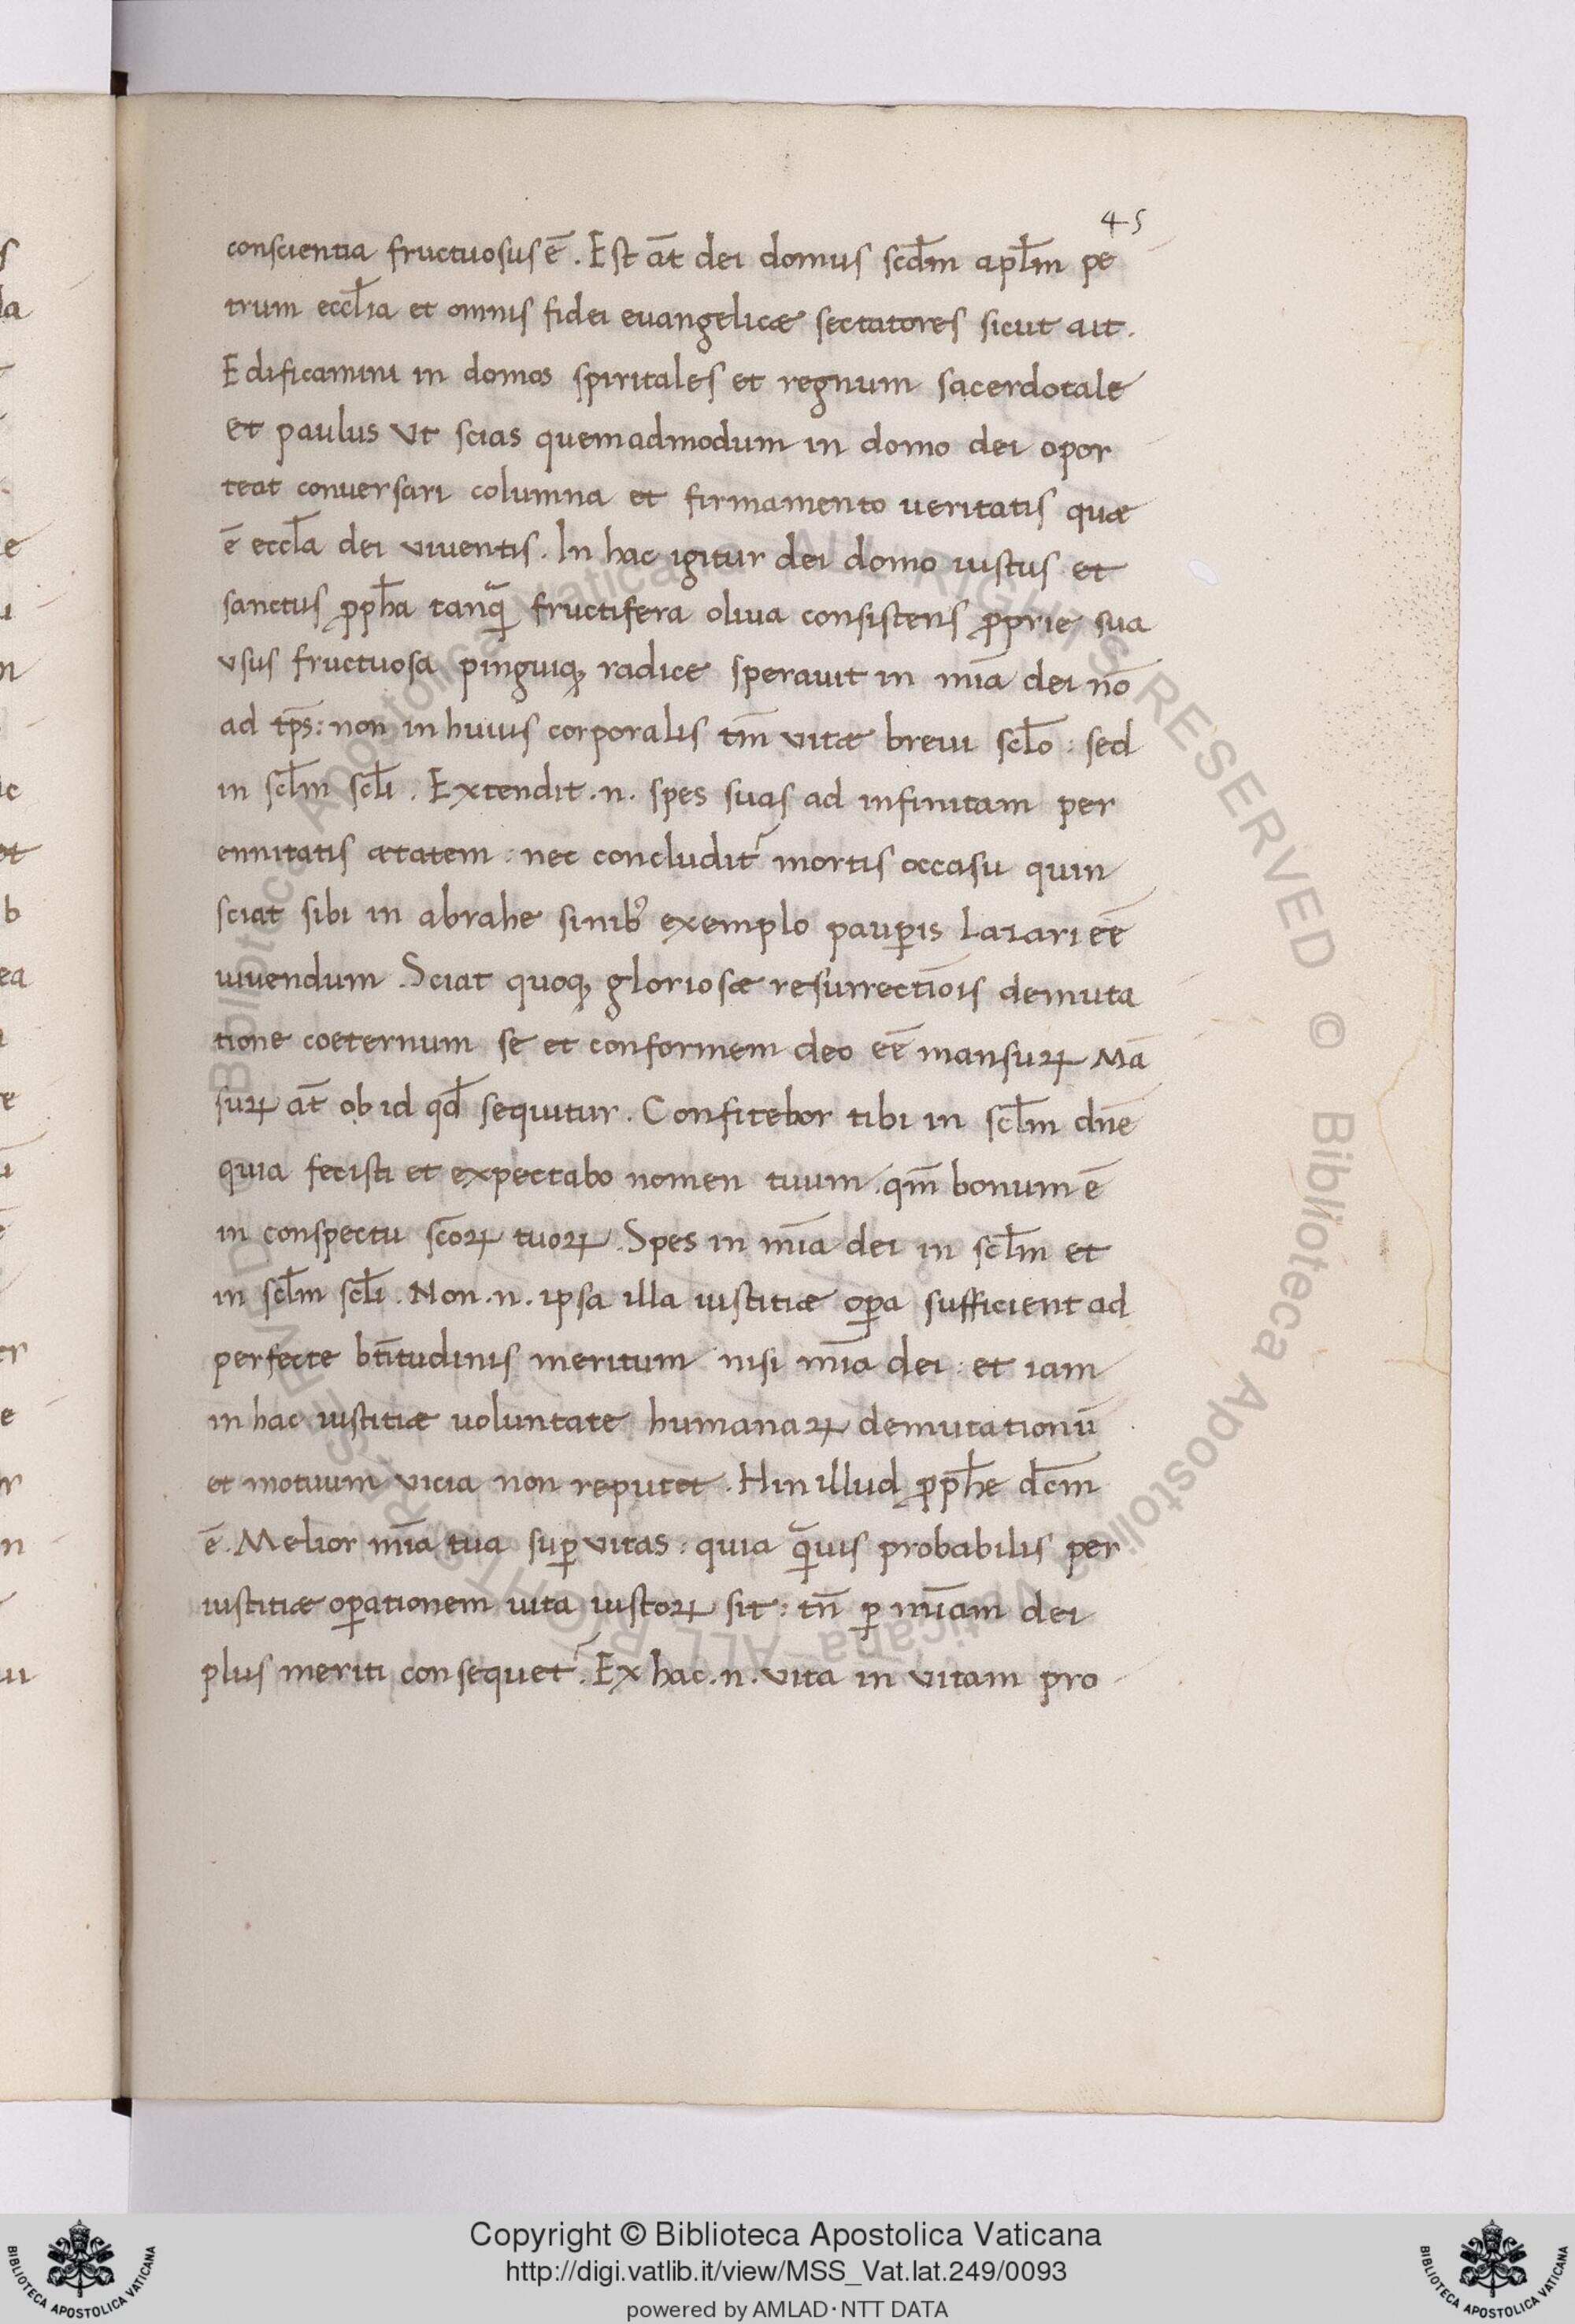 45
conscientia fructuosus ē. Est āt dei domus scd̄m apl̄m pe
trum eccl̄ia et omnis fidei euangelicæ sectatores sicut ait.
Edificamini in domos spiritales et regnum sacerdotale
et paulus vt scias quemadmodum in domo dei opor
teat conuersari columna et firmamento ueritatis quæ
ē eccl̄a dei viuentis. In hac igitur dei domo iustus et
sanctus ꝓph̄a tanqͣꝫ fructifera oliua consistens ꝓprie sua
vsus fructuosa pinguiqꝫ radice sperauit in mīa dei nō
ad tp̄s: non in huius corporalis tm̄ vitæ breui scl̄o: sed
in scl̄m scl̄i. Extendit .n. spes suas ad infinitam per
ennitatis ætatem: nec concludit᷑ mortis occasu quin
sciat sibi in abrahe sinibꝰ exemplo paup̱is Lazari eē
uiuendum. Sciat quoqꝫ gloriosæ resurrectiōis demuta
tione coeternum se et conformem deo eē mansuꝝ Mā
suꝝ āt ob id qd̄ sequitur. Confitebor tibi in scl̄m dn̄e
quia fecisti et expectabo nomen tuum. qm̄ bonum ē
in conspectu sc̄oꝝ tuoꝝ. Spes in mīa dei in scl̄m et
in scl̄m scl̄i. Non .n. ipsa illa iustitiæ oꝑa sufficient ad
perfecte bt̄itudinis meritum nisi mīa dei: et iam
in hac iustitiæ uoluntate humanaꝝ demutationū
et motuum vicia non reputet. Hin illud ꝓph̄e dc̄m
ē. Melior mīa tua suꝑ vitas: quia qͣꝫuis probabilis per
iustitiæ oꝑationem uita iustoꝝ sit: tn̄ ꝑ mīam dei
plus meriti consequet᷑. Ex hac .n. vita in vitam pro
Copyright © Biblioteca Apostolica Vaticana
http://digi.vatlib.it/view/MSS_Vat.lat.249/0093
powered by AMLAD·NTT DATA